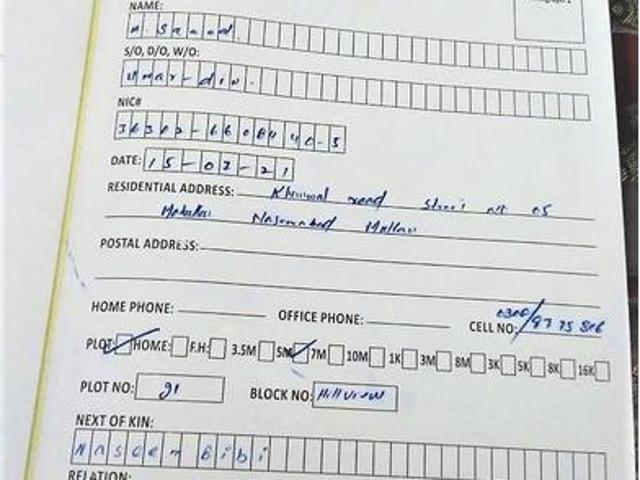 NAME:
M. Saeed.
S/O, D/O, W/O:
Umar-din.
NIC#
36302-6608440-5
DATE: 15-02-21
RESIDENTIAL ADDRESS: road
Nasirabad Multan
POSTAL ADDRESS:
HOME PHONE: OFFICE PHONE: CELL NO:
PLOT: HOME: F.H: 3.5M 5M 7M 10M 1K 3M 8M 3K 5K 8K 16K
PLOT NO: 91 BLOCK NO: Hillview
NEXT OF KIN:
Naseem Bibi
RELATION: